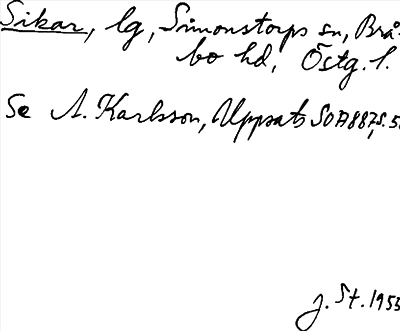 Sikar, lg, Simonstorps sn, Brå-
bo hd, Östg. l.
Se A. Karlsson, Uppsats SOA 887, s. 5
J. St. 1955